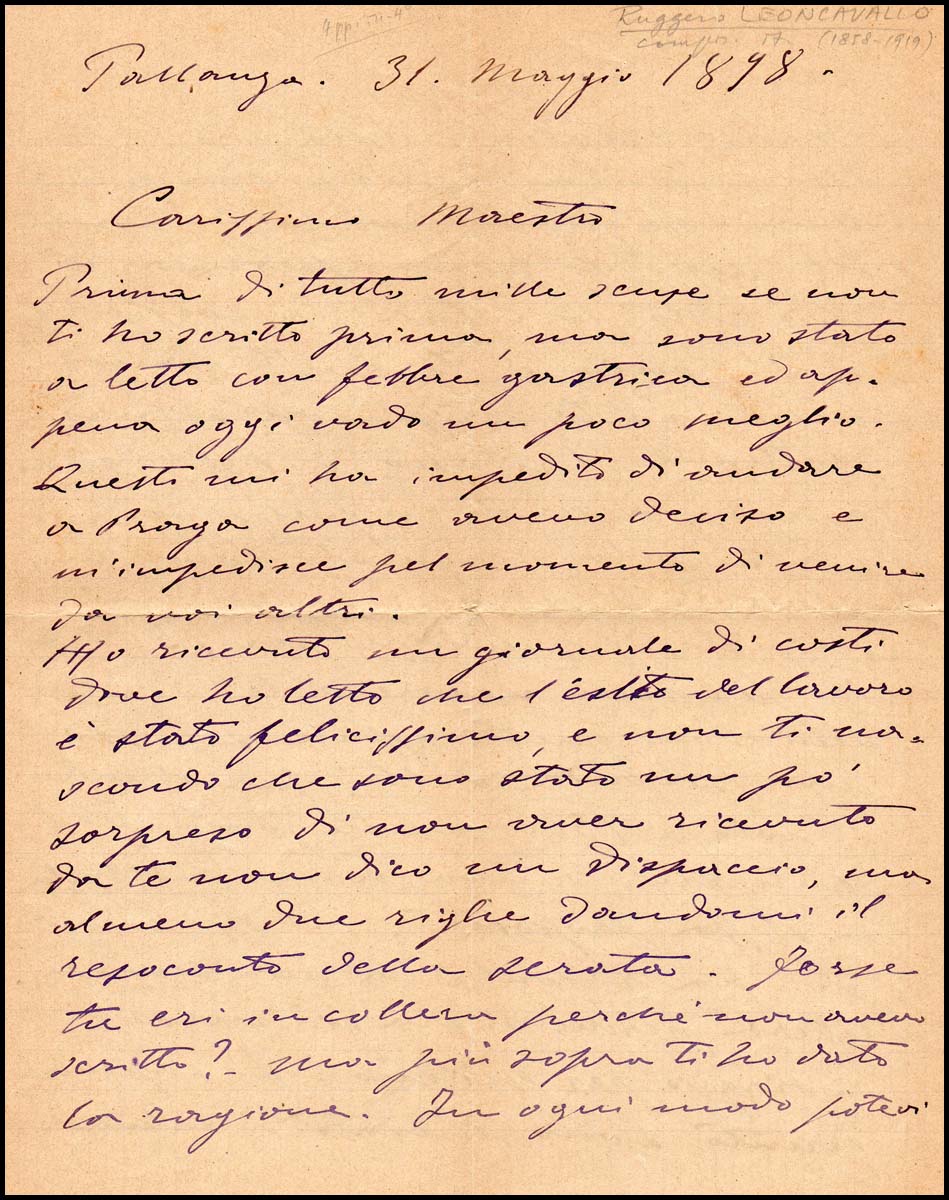 Ruggero LEONCAVALLO
compos. it. (1858-1919)
Pallanza. 31. Maggio 1898.
Carissimo Maestro
Prima di tutto mille scuse se non
ti ho scritto prima, ma sono stato
a letto con febbre gastrica ed ap-
pena oggi vado un poco meglio.
Questo mi ha impedito di andare
a Praga come avevo deciso e
m'impedisce pel momento di venire
da voi altri.
Ho ricevuto un giornale di costì
dove ho letto che l'esito del lavoro
è stato felicissimo, e non ti na-
scondo che sono stato un pó
sorpreso di non aver ricevuto
da te non dico un dispaccio, ma
almeno due righe dandomi il
resoconto della serata. Forse
tu eri in collera perché non avevo
scritto? - ma più sopra ti ho dato
la ragione. In ogni modo potevi